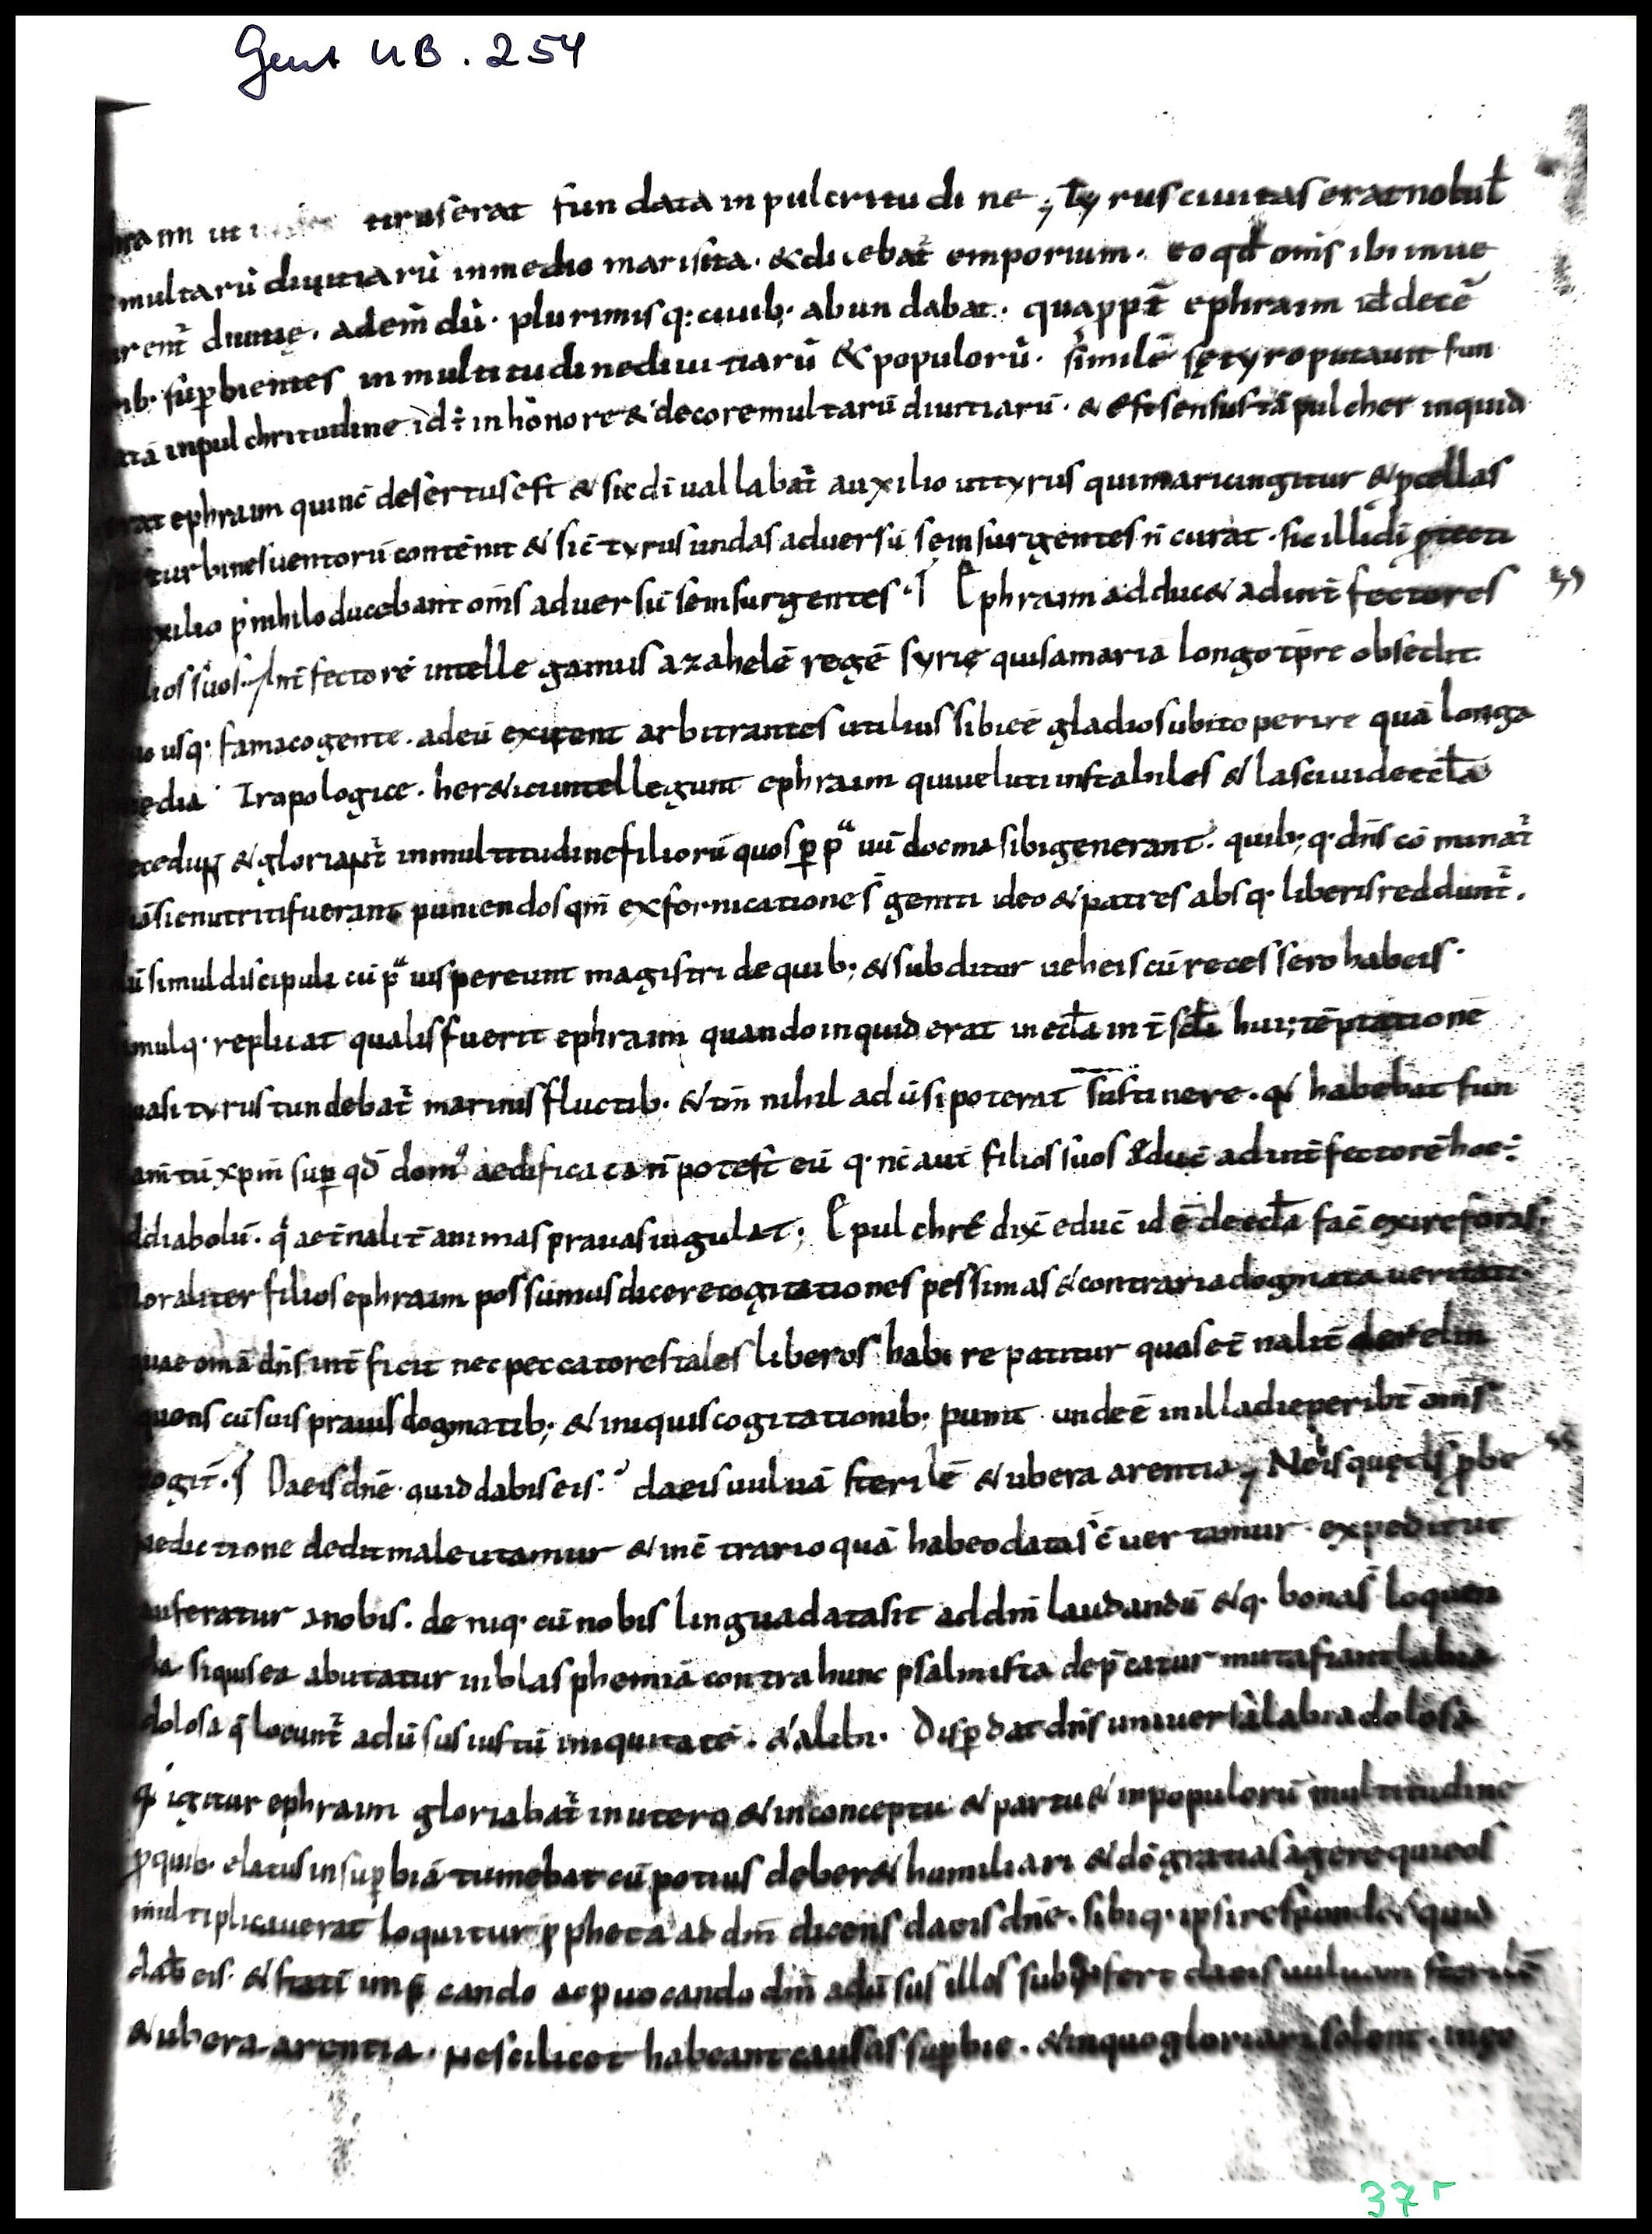 Gent UB. 254
tiruserat fundata in pulcritudine ; Tyrus ciuitas erat nobil̄
multarū diuitiarū in medio maris sita · & dicebat̄ emporium · eo qd̄ om̄s ibi inue
dum̄ adem̄dū · plurimisq: ciuib; abundabat · quapp̄t ephraim id̄ decē
sup̄bientes in multitudine diuitiarū & populorū · similē sę tyro putauit fun
in pulchritudine id ÷ in honore & decore multarū diuitiarū · & est sensus tā pulcher inquid
ephraim qui nc̄ desertus est & sic di uallabat̄ auxilio ut tyrus qui mari cingitur & pcellas
turbines uentorū contēnit & sic̄ tyrus undas aduersū sę insurgentes n̄ curat · sic illi di ptecti
p nihilo ducebant om̄s aduersū se insurgentes · Ephraim adduc& ad int̄fectores
suos · Int̄fectorē intellegamus azahelē regē syrię qui samariā longo tp̄re obsedit
usq· fama cogente · ad eū exirent arbitrantes utilius sibi ēē gladio subito perire quā longa
Tropologice · her&ici intellegunt ephraim qui uelut instabiles & lasciui de eccl̄a
& gloriant̄ in multitudine filiorū quos p pᵃuū docma sibi generant · quib; q· dn̄s cōminat̄
si enutriti fuerant puniendos qm̄ ex fornicatione s̄ geniti ideo & patres absq· liberis reddunt̄ ·
simul discipuli cū pᵃuis pereunt magistri de quib; & subditur ueh eis cū recessero ab eis ·
replicat qualis fuerit ephraim quando inquid erat in eccl̄a in ī scl̄i hui; tēptatione
tyrus tundebat̄ marinis fluctib· & tm̄ nihil adūsi poterat sustinere · q̇ habebat fun
xp̄m sup qd̄ dom⁹ aedificata n̄ potest eū q· nc̄ aut̄ filios suos educ̄ ad int̄fectorē hoc ÷
diabolū · q̇ aet̄nalit̄ animas prauas iugulat ; Et pulchrē dix̄ educ̄ id ē de eccl̄a fac̄ exire foras ·
Moraliter filios ephraim possumus dicere cogitationes pessimas & contraria dogmata ueritati ·
quae om̄a dn̄s int̄ficit nec peccatores tales liberos habere patitur quos et̄nalit̄ derelin
quens cū suis prauis dogmatib; & iniquis cogitationib; punit unde ē in illa die peribt̄ om̄s
cogit̄ · Da eis dn̄e · quid dabis eis ? da eis uuluā sterilē & ubera arentia ; Ne his quę ds̄ p be
nedictione dedit male utamur & in c̄trario quā habeo datas c̄uertamur · expedit ut
auferatur a nobis · deniq· cū nobis lingua data sit ad dn̄i laudandū & q· bona s̄ loquen
da siquis ea abutatur in blasphemiā contra hunc psalmista dep̄catur muta fiant labia
dolosa q̄ locunt̄ adūsus iustū iniquitatē · & alibi · Disp̄dat dn̄s uniuersa labia dolosa
q̇ igitur ephraim gloriabat̄ in utero & in conceptu & partu & in populorū multitudine
p quib· elatus in sup̄biā tumebat cū potius deber& humiliari & dō gratias agere qui eos
multiplicauerat loquitur ppheta ad dn̄m dicens da eis dn̄e · sibiq· ipsi respondes quid
dab̄ eis · & statī imp̄cando ac puocando dn̄m adūsus illos subinfert da eis uuluam sterilē
& ubera arentia · Ne scilicet habeant causas sup̄bie · & in quo gloriari solent ·
37r